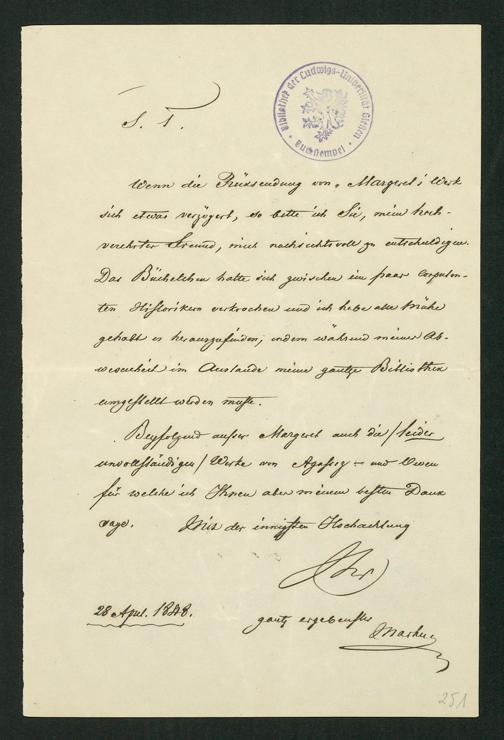 Bibliothek der Ludwigs-Universität Gießen
S. T.
Wenn die Rücksendung von Margeret's Werk
sich etwas verzögert, so bitte ich Sie, mein hoch-
verehrter Freund, mich nachsichtsvoll zu entschuldigen.
Das Büchelchen hatte sich zwischen ein paar corpulen-
ten Historikern verkrochen und ich habe alle Mühe
gehabt es herauszufinden; indem während meiner Ab-
wesenheit im Auslande meine gantze Bibliothek
umgestellt werden mußte.
Beyfolgend ausser Margeret auch die /leider
unvollständigen/ Werke von Agassiz und Owen
für welche ich Ihnen aber meinen besten Dank
sage. Mit der innigsten Hochachtung
Ihr
28 Apr. 1848.
gantz ergebenster
251